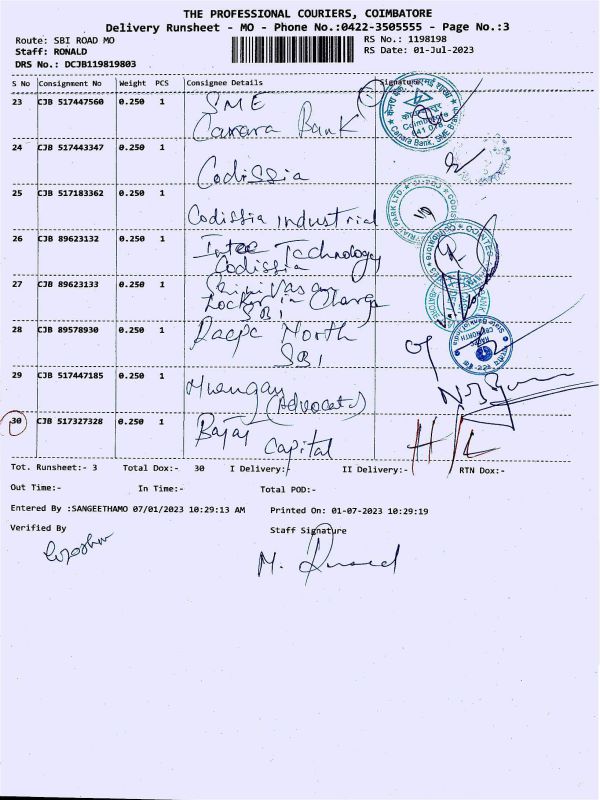 THE PROFESSIONAL COURIERS, COIMBATORE
Delivery Runsheet - MO - Phone No.:0422-3505555 - Page No.:3
Route: SBI ROAD MO
RS No.: 1198198
Staff: RONALD
RS Date: 01-Jul-2023
DRS No.: DCJB119819803
S No Consignment No Weight PCS Consignee Details Signature
23 CJB 517447560 0.250 1 SME
Canara Bank
24 CJB 517443347 0.250 1
Codissia
25 CJB 517183362 0.250 1
Codissia industrial
26 CJB 89623132 0.250 1 Intec Technology
Codissia
27 CJB 89623133 0.250 1 Srinivasan
Locker in Charge
SBI
28 CJB 89578930 0.250 1 Racpc North
SBI
29 CJB 517447185 0.250 1
(Advocate)
30 CJB 517327328 0.250 1 Bajaj
Capital
Tot. Runsheet:- 3 Total Dox:- 30 I Delivery:- II Delivery:- RTN Dox:-
Out Time:- In Time:- Total POD:-
Entered By :SANGEETHAMO 07/01/2023 10:29:13 AM Printed On: 01-07-2023 10:29:19
Verified By Staff Signature